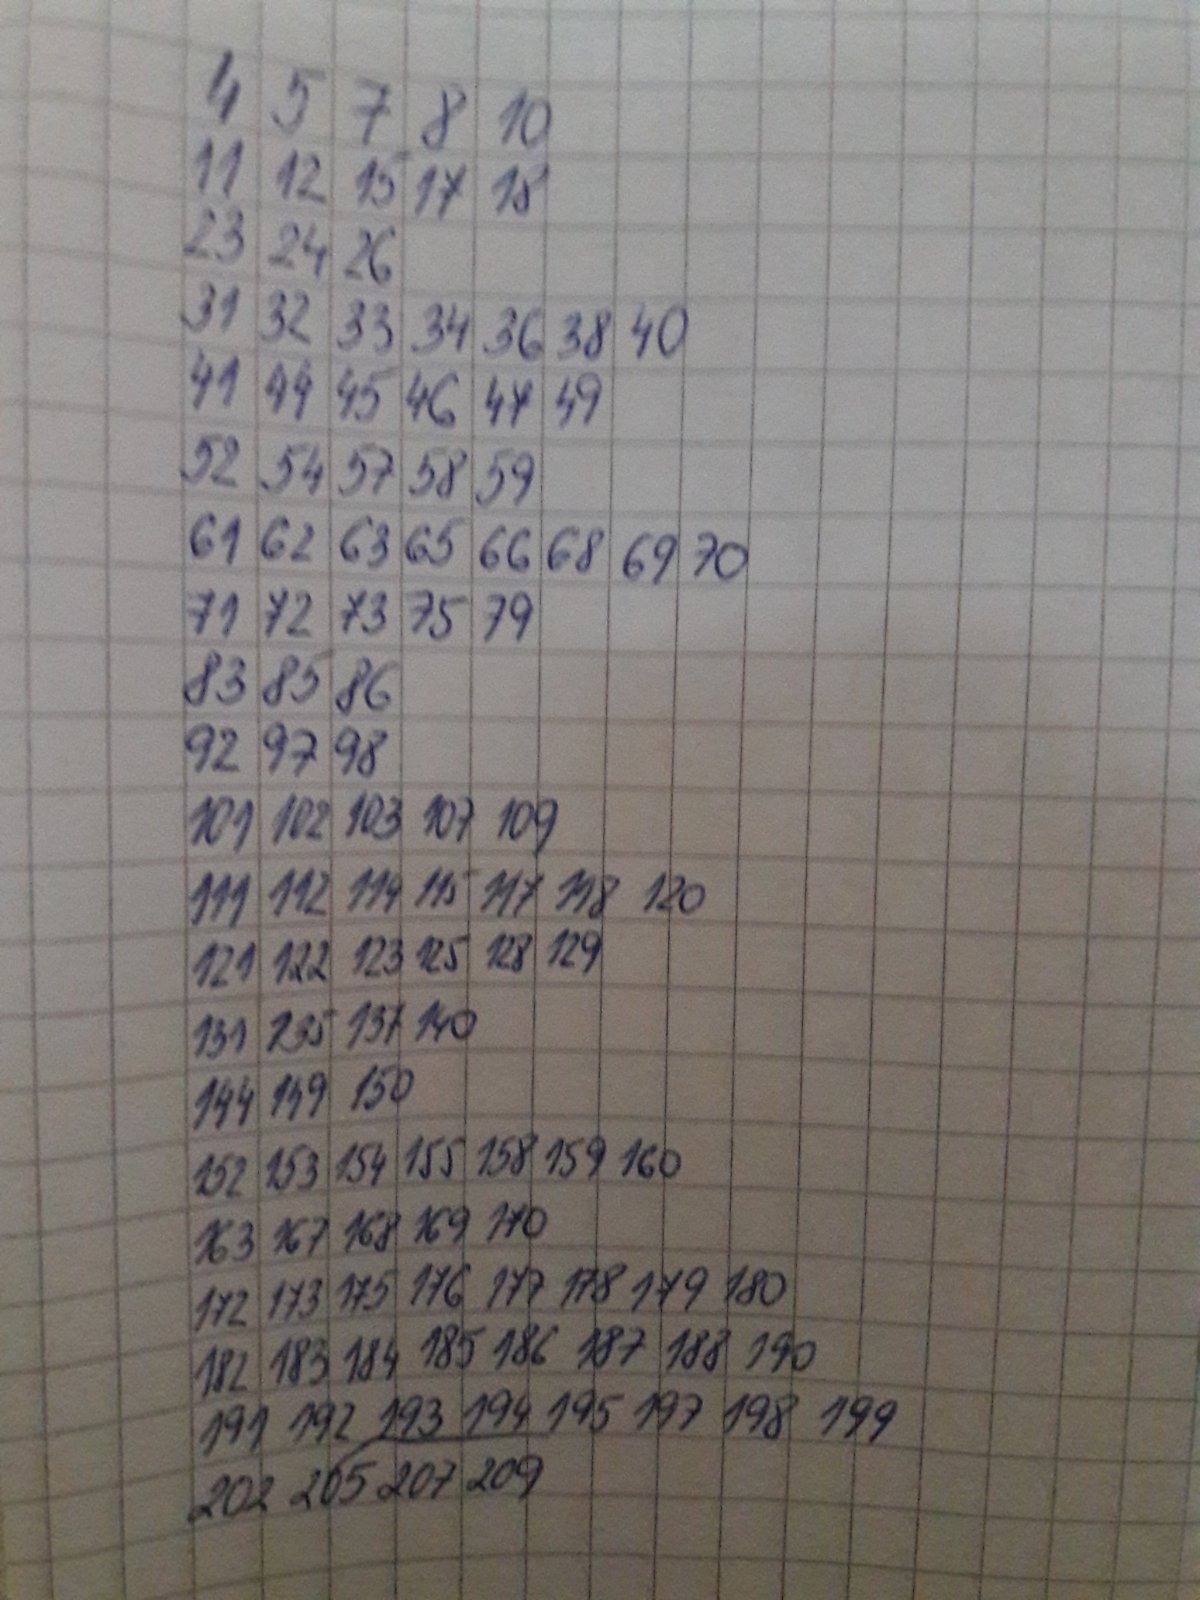 4 5 7 8 10
11 12 15 17 18
23 24 26
31 32 33 34 36 38 40
41 44 45 46 47 49
52 54 57 58 59
61 62 63 65 66 68 69 70
71 72 73 75 79
83 85 86
92 97 98
101 102 103 107 109
111 112 114 115 117 118 120
121 122 123 125 128 129
131 135 137 140
144 149 150
152 153 154 155 158 159 160
163 167 168 169 170
172 173 175 176 177 178 179 180
182 183 184 185 186 187 188 190
191 192 193 194 195 197 198 199
202 205 207 209